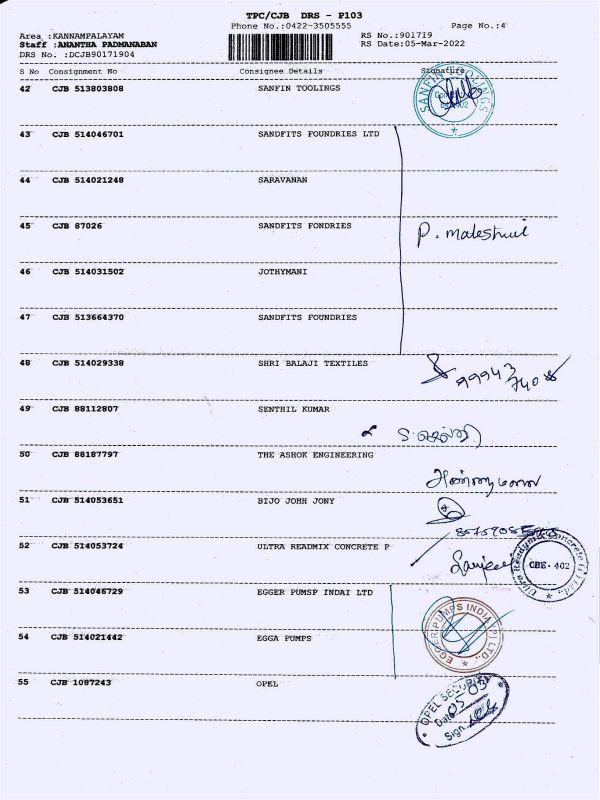 TPC/CJB DRS - P103
Phone No.:0422-3505555
Page No.:4
Area :KANNAMPALAYAM
RS No.:901719
Staff :ANANTHA PADMANABAN
RS Date:05-Mar-2022
DRS No. :DCJB90171904
S No Consignment No Consignee Details Signature
42 CJB 513803808 SANFIN TOOLINGS
SANFIN TOOLINGS
43 CJB 514046701 SANDFITS FOUNDRIES LTD
44 CJB 514021248 SARAVANAN
45 CJB 87026 SANDFITS FONDRIES
P. maleshwi
46 CJB 514031502 JOTHYMANI
47 CJB 513664370 SANDFITS FOUNDRIES
48 CJB 514029338 SHRI BALAJI TEXTILES
99943
49 CJB 88112807 SENTHIL KUMAR
50 CJB 88187797 THE ASHOK ENGINEERING
51 CJB 514053651 BIJO JOHH JONY
52 CJB 514053724 ULTRA READMIX CONCRETE P
CBE - 402
53 CJB 514046729 EGGER PUMSP INDAI LTD
EGGER PUMPS INDIA (P) LTD.,
54 CJB 514021442 EGGA PUMPS
55 CJB 1087243 OPEL
OPEL SECURITY
Date 05/03
Sign